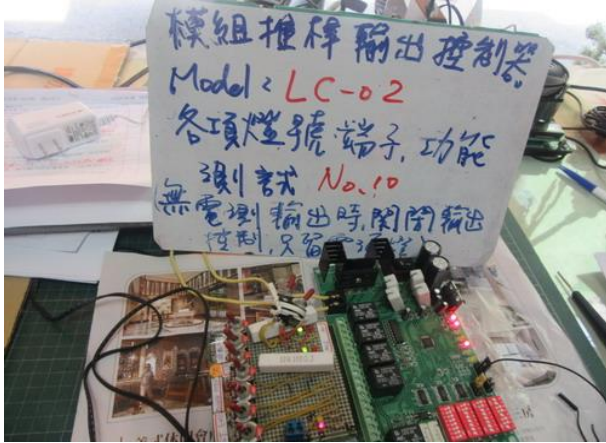 模組推桿輸出控制器
Model: LC-02
各項燈號、端子、功能
測試 No.10
無電測輸出時,關閉輸出
控制,只留電源燈